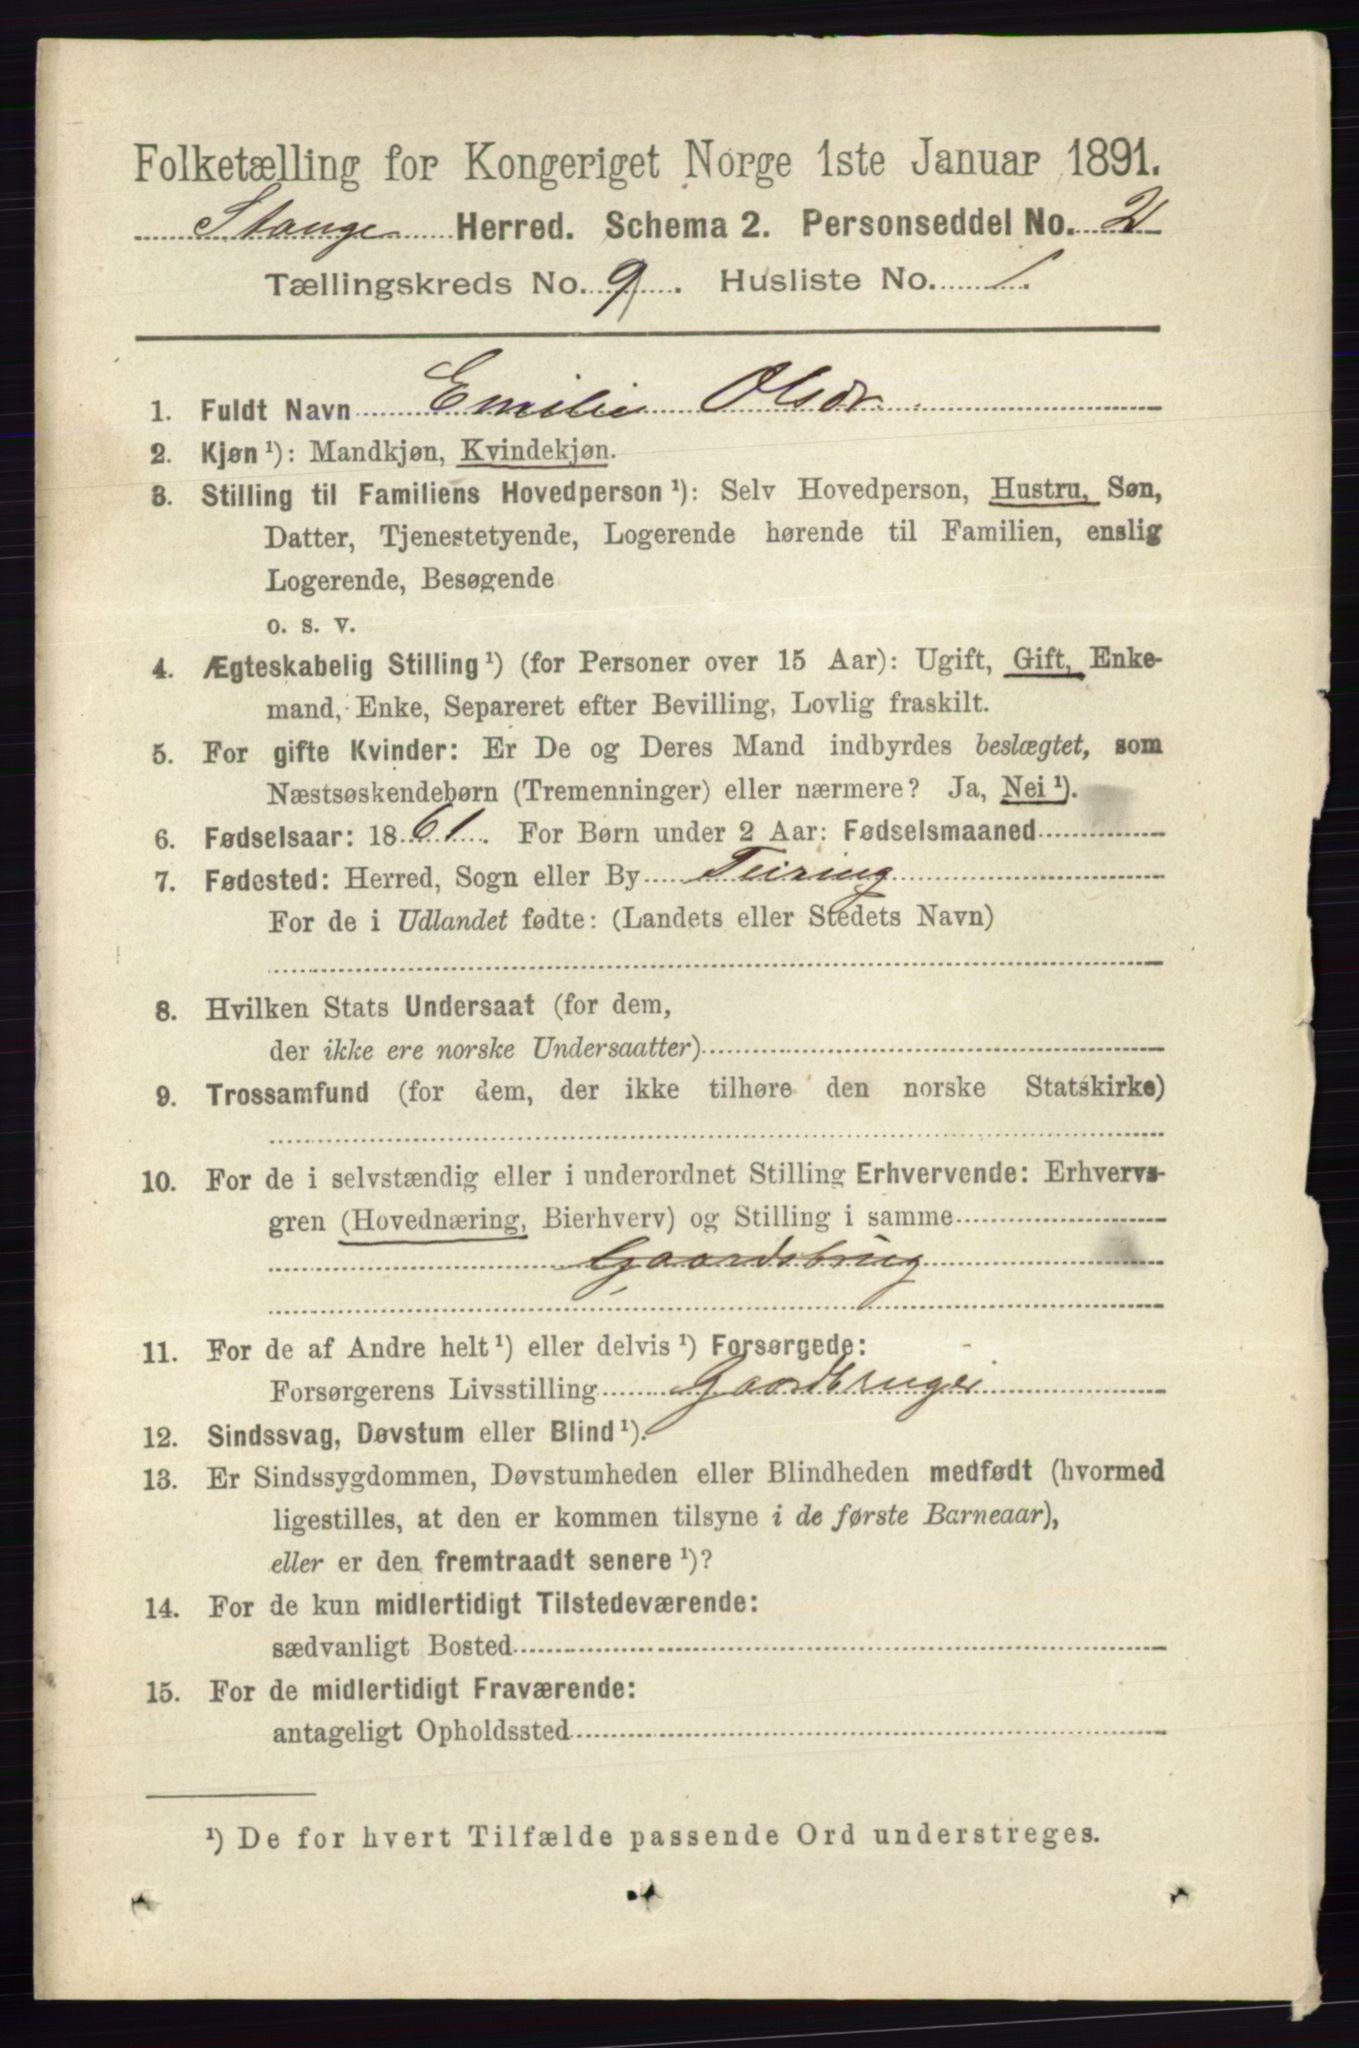 Folketælling for Kongeriget Norge 1ste Januar 1891.
Stange Herred. Schema 2. Personseddel No. 2
Tællingskreds No. 9. Husliste No. 1.
1. Fuldt Navn Emilie Olsdr
2. Kjøn ¹): Mandkjøn, Kvindekjøn.
3. Stilling til Familiens Hovedperson ¹): Selv Hovedperson, Hustru, Søn,
Datter, Tjenestetyende, Logerende hørende til Familien, enslig
Logerende, Besøgende
o. s. v.
4. Ægteskabelig Stilling ¹) (for Personer over 15 Aar): Ugift, Gift, Enke-
mand, Enke, Separeret efter Bevilling, Lovlig fraskilt.
5. For gifte Kvinder: Er De og Deres Mand indbyrdes beslægtet, som
Næstsøskendebørn (Tremenninger) eller nærmere? Ja, Nei ¹).
6. Fødselsaar: 1861. For Børn under 2 Aar: Fødselsmaaned
7. Fødested: Herred, Sogn eller By Feiring
For de i Udlandet fødte: (Landets eller Stedets Navn)
8. Hvilken Stats Undersaat (for dem,
der ikke ere norske Undersaatter)
9. Trossamfund (for dem, der ikke tilhøre den norske Statskirke)
10. For de i selvstændig eller i underordnet Stilling Erhvervende: Erhvervs-
gren (Hovednæring, Bierhverv) og Stilling i samme
Gaardsbrug
11. For de af Andre helt ¹) eller delvis ¹) Forsørgede:
Forsørgerens Livsstilling Gaardbruger
12. Sindssvag, Døvstum eller Blind ¹).
13. Er Sindssygdommen, Døvstumheden eller Blindheden medfødt (hvormed
ligestilles, at den er kommen tilsyne i de første Barneaar),
eller er den fremtraadt senere ¹)?
14. For de kun midlertidigt Tilstedeværende:
sædvanligt Bosted
15. For de midlertidigt Fraværende:
antageligt Opholdssted
¹) De for hvert Tilfælde passende Ord understreges.